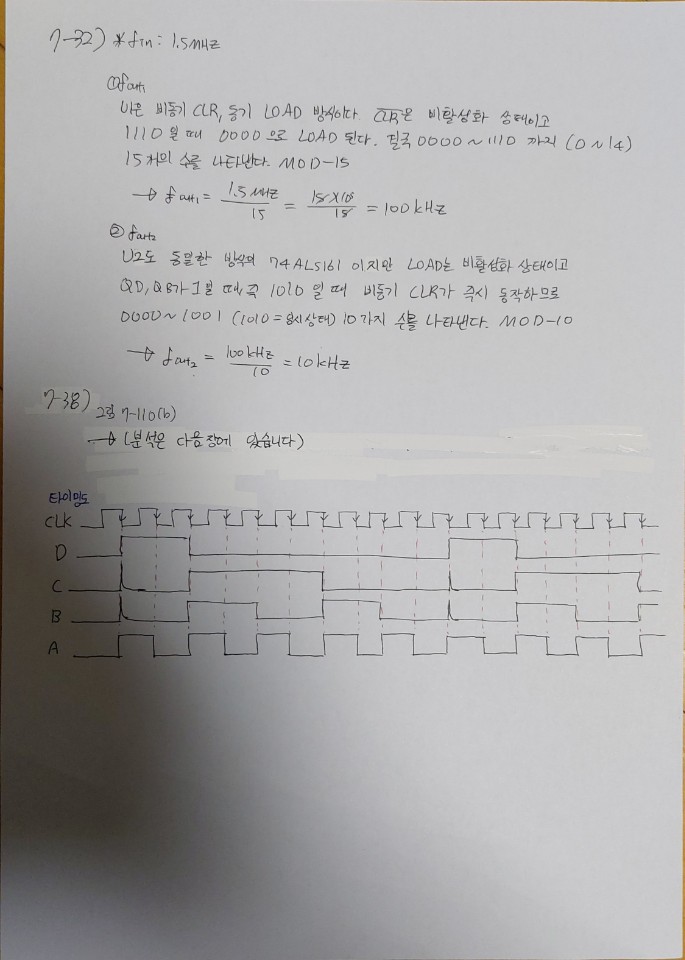 7-32) * fin : 1.5MHz
① fout1
U1은 비동기 CLR, 동기 LOAD 방식이다. CLR은 비활성화 상태이고
1110 일 때 0000 으로 LOAD 된다. 결국 0000 ~ 1110 까지 (0 ~ 14)
15개의 수를 나타낸다. MOD-15
→ fout1 = 1.5MHz / 15 = 15×10⁵ / 15 = 100kHz
② fout2
U2도 동일한 방식의 74ALS161 이지만 LOAD는 비활성화 상태이고
QD, QB가 1일 때, 즉 1010 일 때 비동기 CLR가 즉시 동작하므로
0000 ~ 1001 (1010 = 임시상태) 10가지 수를 나타낸다. MOD-10
→ fout2 = 100kHz / 10 = 10kHz
7-38) 그림 7-110(b)
→ (분석은 다음장에 있습니다)
타이밍도
CLK
D
C
B
A